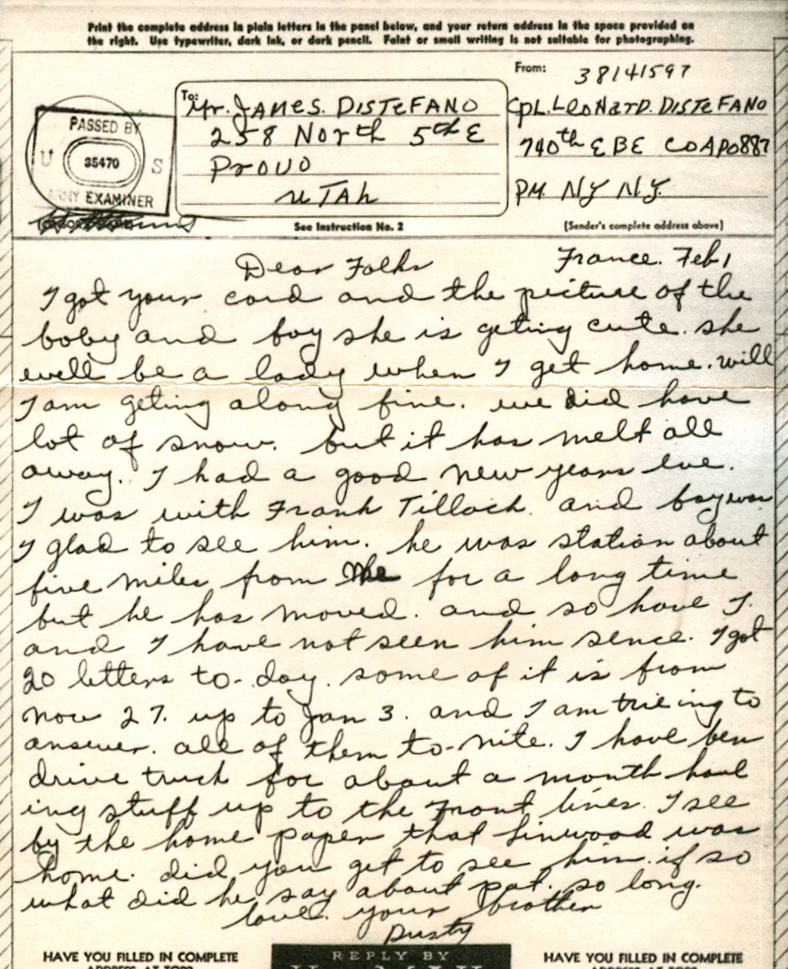 Print the complete address in plain letters in the panel below, and your return address in the space provided on
the right. Use typewriter, dark ink, or dark pencil. Faint or small writing is not suitable for photographing.
From: 38141597
To: Mr. JAMES. DISTEFANO
258 North 5th E
Provo
UTAh
CpL. LEONARD. DISTEFANO
740th EBE CO APO 887
PM NY NY.
PASSED BY
U 35470 S
ARMY EXAMINER
See Instruction No. 2
(Sender's complete address above)
Dear Folks France. Feb, 1
I got your card and the picture of the
baby and boy she is geting cute. she
well be a lady when I get home. will
I am geting along fine. we did have
lot of snow. but it has melt all
away. I had a good New years eve.
I was with Frank Tilloch. and boy was
I glad to see him. he was station about
five miles from me for a long time
but he has moved. and so have I.
and I have not seen him sence. I got
20 letters to-day. some of it is from
Nov 27. up to Jan 3. and I am trieing to
answer. all of them to-nite. I have ben
drive truck for about a month haul
ing stuff up to the Front lines. I see
by the home paper that Linwood was
home. did you get to see him. if so
what did he say about pat. so long.
love. your brother
Dusty
HAVE YOU FILLED IN COMPLETE
ADDRESS AT TOP?
REPLY BY
V-MAIL
HAVE YOU FILLED IN COMPLETE
ADDRESS AT TOP?